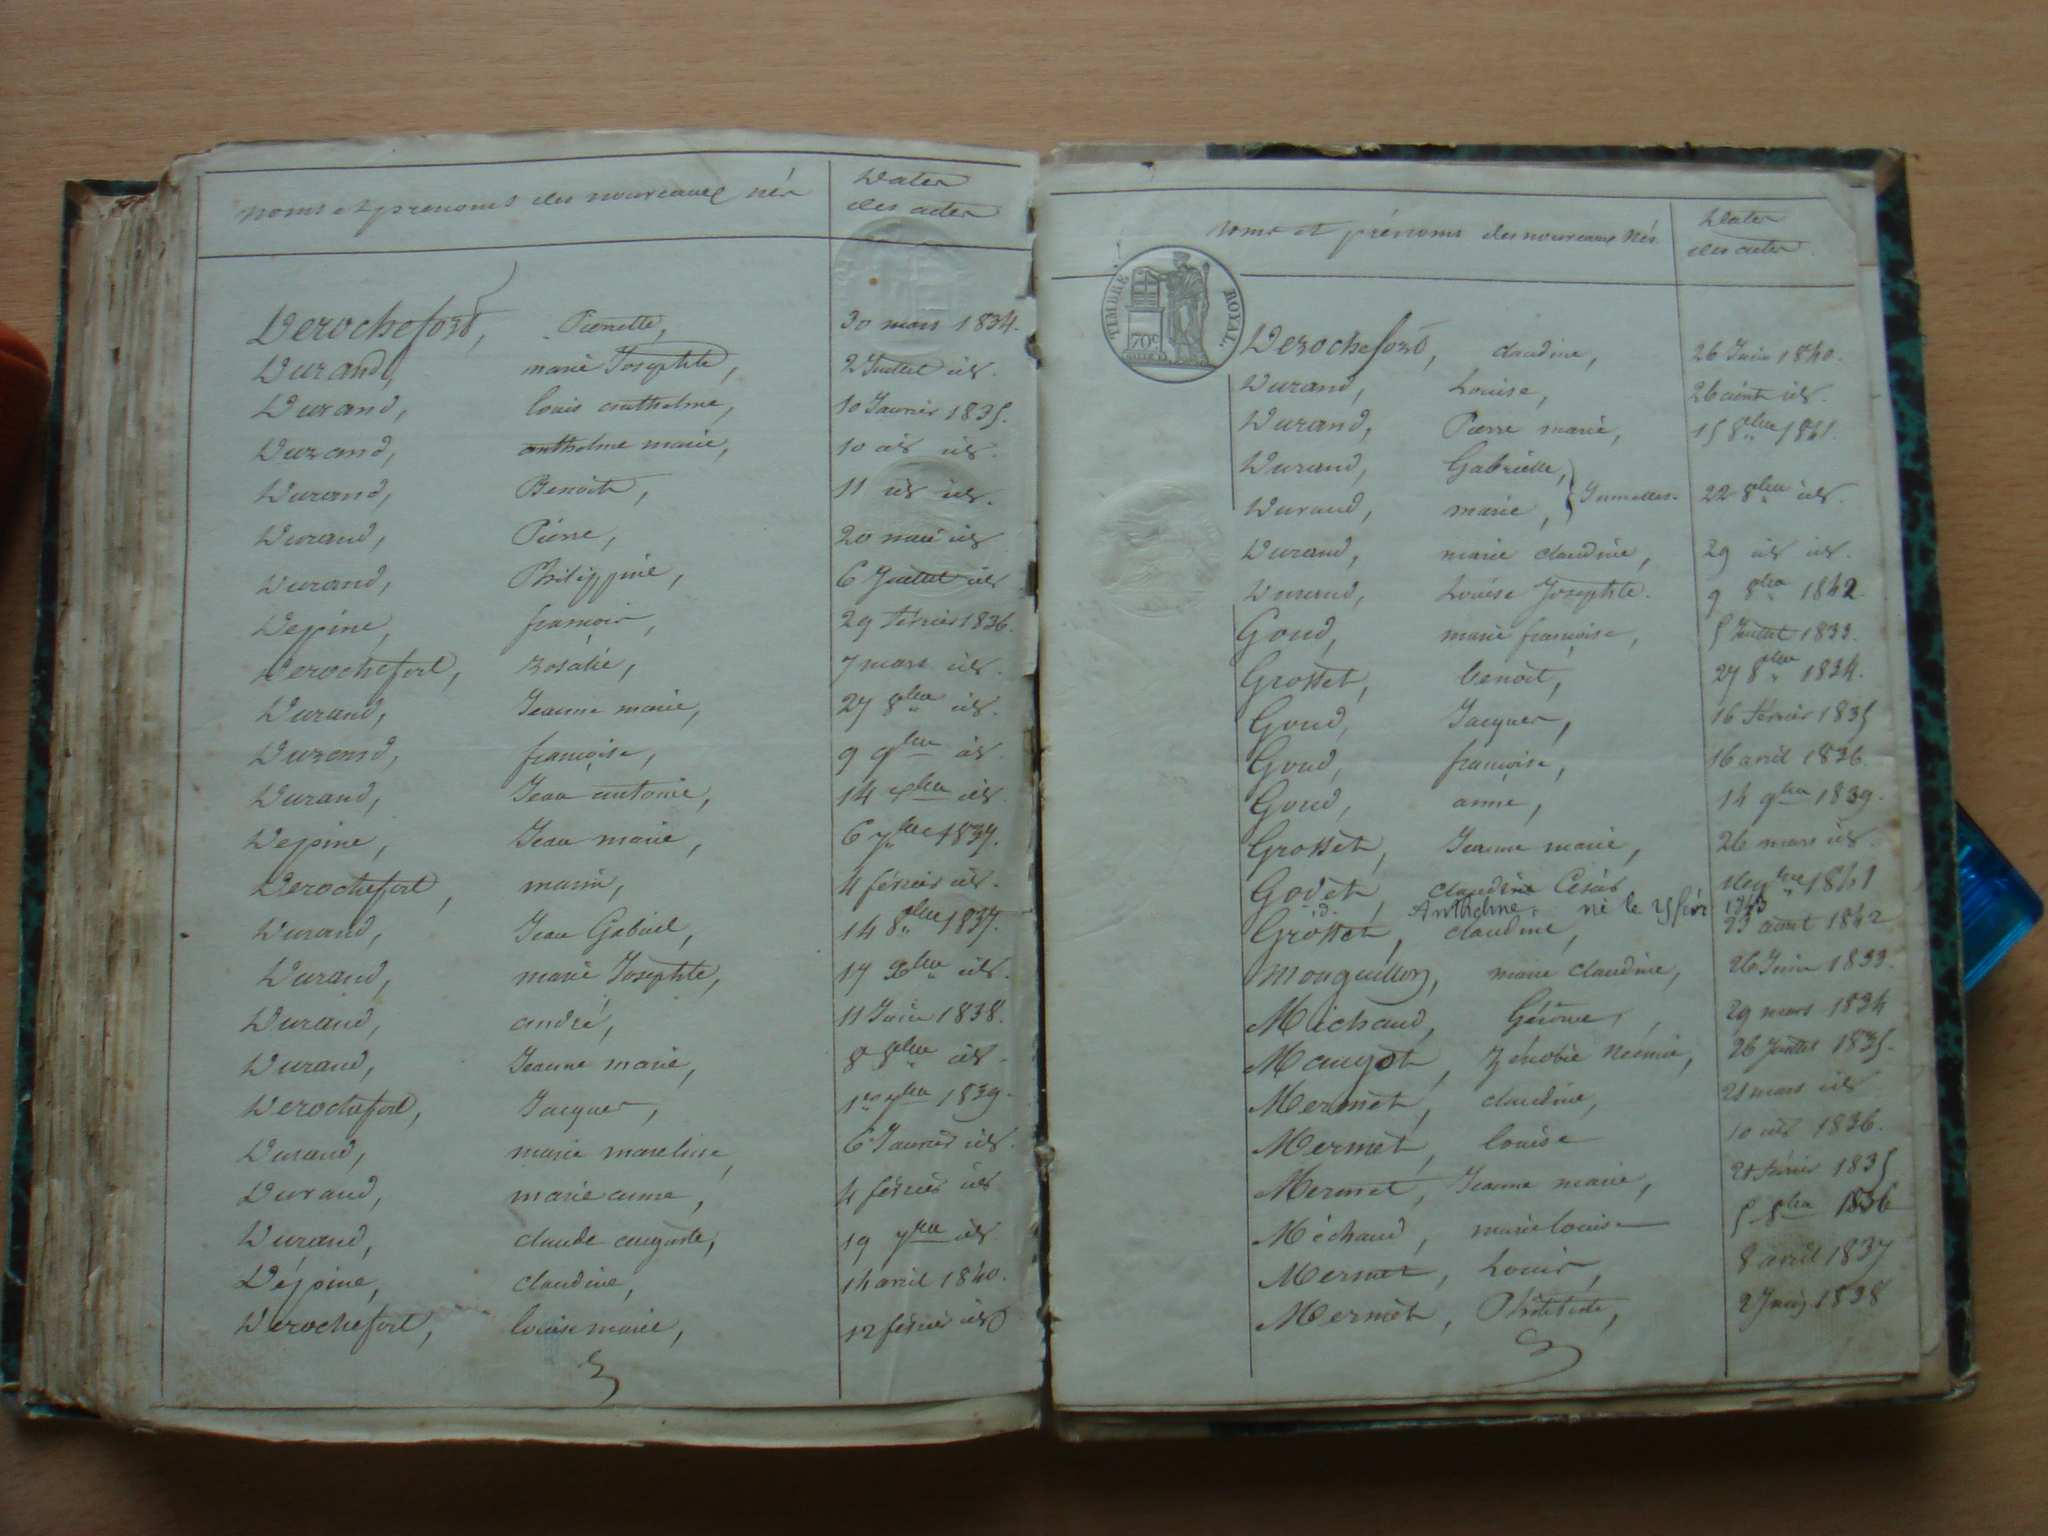 noms et prenoms des nouveaux nés
Dates
des actes
Derochefort, Pierrette, 30 mars 1834.
Durand, marie Josephte, 2 Juillet id.
Durand, louis anthelme, 10 Janvier 1835.
Durand, anthelme marie, 10 id id.
Durand, Benoit, 11 id id.
Durand, Pierre, 20 mai id
Durand, Philippine, 6 Juillet id
Depine, francois, 29 février 1836.
Derochefort, rosalie, 7 mars id.
Durand, Jeanne marie, 27 8bre id.
Durand, francoise, 9 9bre id.
Durand, Jean antoine, 14 id.
Depine, Jean marie, 6 7bre 1837.
Derochefort, marie, 4 février id.
Durand, Jean Gabriel, 14 8bre 1837.
Durand, marie Josephte, 17 id.
Durand, andré, 11 Juin 1838.
Durand, Jeanne marie, 8 8bre id.
Derochefort, Jacques, 1er 1839.
Durand, marie 6 Janvier id.
Durand, marie anne, 4 février id
Durand, claude auguste, 19 id
Dépine, claudine, 14 avril 1840.
Derochefort, louise marie, 12 février id
noms et prénoms des nouveaux Nés.
Dates
des actes.
TIMBRE ROYAL.
70c
Derochefort, claudine, 26 Juin 1840.
Durand, Louise, 26 août id.
Durand, Pierre marie, 15 8bre 1841.
Durand, Gabrielle,
Durand, marie, Jumelles. 22 8bre id.
Durand, marie claudine, 29 id id.
Durand, Louise Josephte. 9 8bre 1842.
Goud, marie francoise, 5 Juillet 1833.
Grosset, benoit, 27 8bre 1834.
Goud, Jacques, 16 février 1835
Goud, francoise, 16 avril 1836.
Goud, anne, 14 9bre 1839.
Grosset, Jeanne marie, 26 mars id.
Godet, claudine Césár 1841
id. Anthelme. né le 1843
Grosset, claudine, 23 août 1842
Monguillon, marie claudine, 26 Juin 1833.
Michaud, Gérôme, 29 mars 1834
Maugot, Zénobie Néomie, 26 Juillet 1835.
Mermet, claudine, 21 mars id
Mermet, louise 10 id 1836.
Mermet, Jeanne marie, 21 février 1835
Michaud, marie louise 5 8bre 1836
Mermet, Louis, 8 avril 1837
Mermet, 2 1838